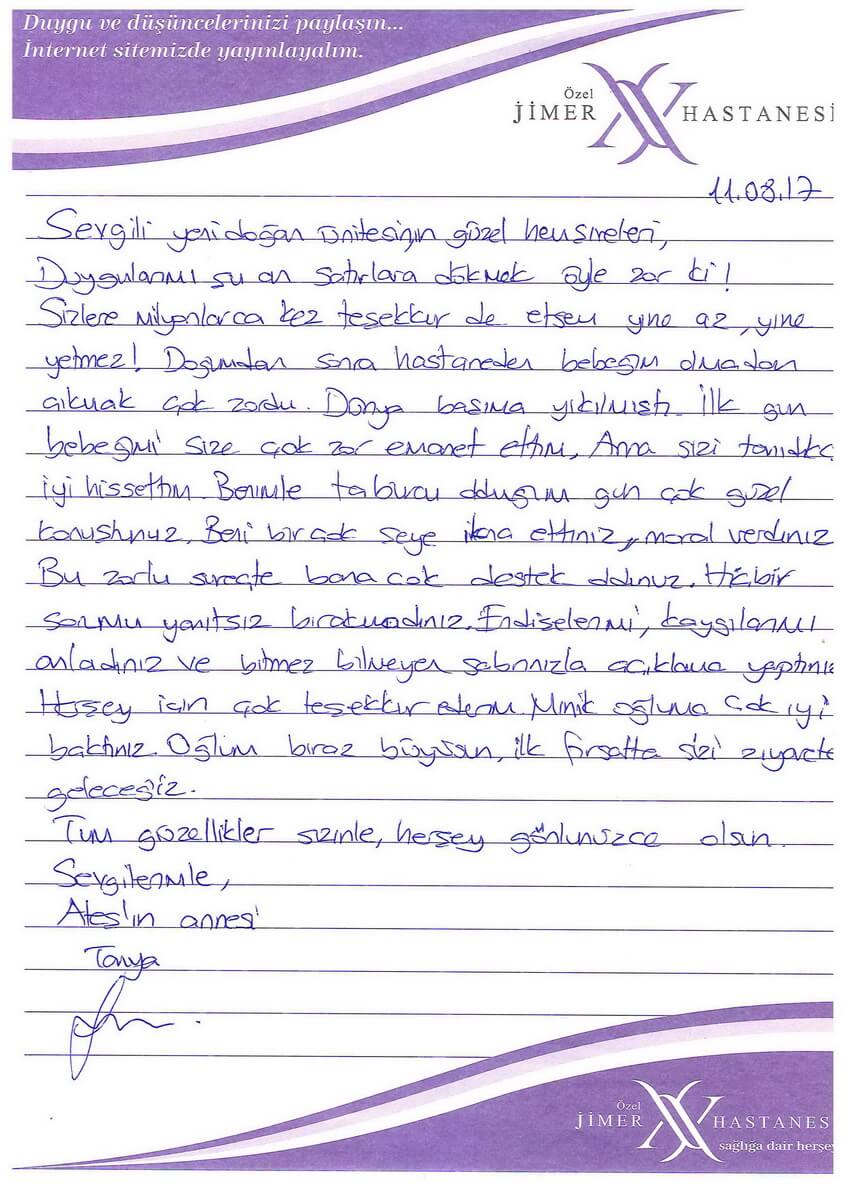 Duygu ve düşüncelerinizi paylaşın...
İnternet sitemizde yayınlayalım.
Özel
JİMER HASTANESİ
11.08.17
Sevgili yenidoğan ünitesinin güzel hemşireleri,
Duygularımı şu an satırlara dökmek öyle zor ki!
Sizlere milyonlarca kez teşekkür de etsem yine az, yine
yetmez! Doğumdan sonra hastaneden bebeğim olmadan
çıkmak çok zordu. Dünya başıma yıkılmıştı. İlk gün
bebeğimi size çok zor emanet ettim, Ama sizi tanıdıkç
iyi hissettim. Benimle taburcu olduğum gün çok güzel
konuştunuz. Beni bir çok şeye ikna ettiniz, moral verdiniz
Bu zorlu süreçte bana çok destek oldunuz. Hiçbir
sorumu yanıtsız bırakmadınız. Endişelerimi, kaygılarımı
anladınız ve bitmez bilmeyen sabrınızla açıklama yaptınız
Herşey için çok teşekkür ederim. Minik oğluma çok iyi
baktınız. Oğlum biraz büyüsün, ilk fırsatta sizi ziyarete
geleceğiz.
Tüm güzellikler sizinle, herşey gönlünüzce olsun.
Sevgilerimle,
Ateş'in annesi
Tanya
Özel
JİMER HASTANES
sağlığa dair herşey